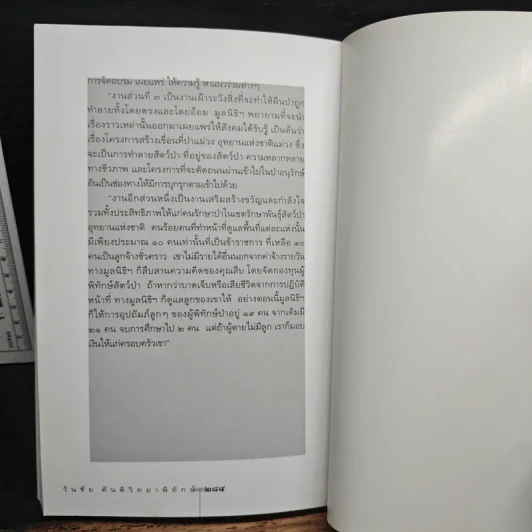 การจัดอบรม เผยแพร่ ให้ความรู้ หาแนวร่วมต่างๆ
"งานส่วนที่ ๓ เป็นงานเฝ้าระวังสิ่งที่จะทำให้ผืนป่าถูก
ทำลายทั้งโดยตรงและโดยอ้อม มูลนิธิฯ พยายามที่จะนำ
เรื่องราวเหล่านั้นออกมาเผยแพร่ให้สังคมได้รับรู้ เป็นต้นว่า
เรื่องโครงการสร้างเขื่อนที่ป่าแม่วง อุทยานแห่งชาติแม่วง ซึ่ง
จะเป็นการทำลายสัตว์ป่า ที่อยู่ของสัตว์ป่า ความหลากหลาย
ทางชีวภาพ และโครงการที่จะตัดถนนผ่านเข้าไปในป่าอนุรักษ์
อันเป็นช่องทางให้มีการบุกรุกตามเข้าไปด้วย
"งานอีกส่วนหนึ่งเป็นงานเสริมสร้างขวัญและกำลังใจ
รวมทั้งประสิทธิภาพให้แก่คนรักษาป่าในเขตรักษาพันธุ์สัตว์ป่า
อุทยานแห่งชาติ คนร้อยคนที่ทำหน้าที่ดูแลพื้นที่แต่ละแห่งนั้น
มีเพียงประมาณ ๑๐ คนเท่านั้นที่เป็นข้าราชการ ที่เหลือ ๙๐
คนเป็นลูกจ้างชั่วคราว เขาไม่มีรายได้อื่นนอกจากค่าจ้างรายวัน
ทางมูลนิธิฯ ก็สืบสานความคิดของคุณสืบ โดยจัดกองทุนผู้
พิทักษ์สัตว์ป่า ถ้าหากว่าบาดเจ็บหรือเสียชีวิตจากการปฏิบัติ
หน้าที่ ทางมูลนิธิฯ ก็ดูแลลูกของเขาให้ อย่างตอนนี้มูลนิธิฯ
ก็ให้การอุปถัมภ์ลูกๆ ของผู้พิทักษ์ป่าอยู่ ๑๙ คน จากเดิมมี
๒๑ คน จบการศึกษาไป ๒ คน แต่ถ้าผู้ตายไม่มีลูก เราก็มอบ
เงินให้แก่ครอบครัวเขา"
วันชัย ตันติวิทยาพิทักษ์ ๒๘๔